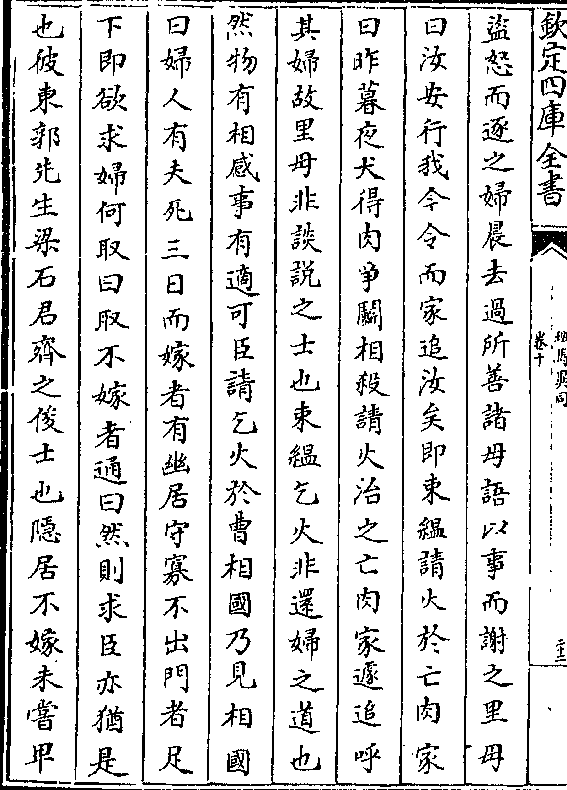 欽定四庫全書
班馬異同
卷十
二十三
盜怒而逐之婦晨去過所善諸母語以事而謝之里母
曰汝安行我今令而家追汝矣即束緼請火於亡肉家
曰昨暮夜犬得肉爭鬬相殺請火治之亡肉家遽追呼
其婦故里母非談説之士也束緼乞火非還婦之道也
然物有相感事有適可臣請乞火於曹相國乃見相國
曰婦人有夫死三日而嫁者有幽居守寡不出門者足
下即欲求婦何取曰取不嫁者通曰然則求臣亦猶是
也彼東郭先生梁石君齊之俊士也隱居不嫁未嘗卑